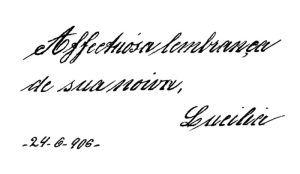 Affectuósa lembrança
de sua noiva,
Lucilia
-24-6-906-